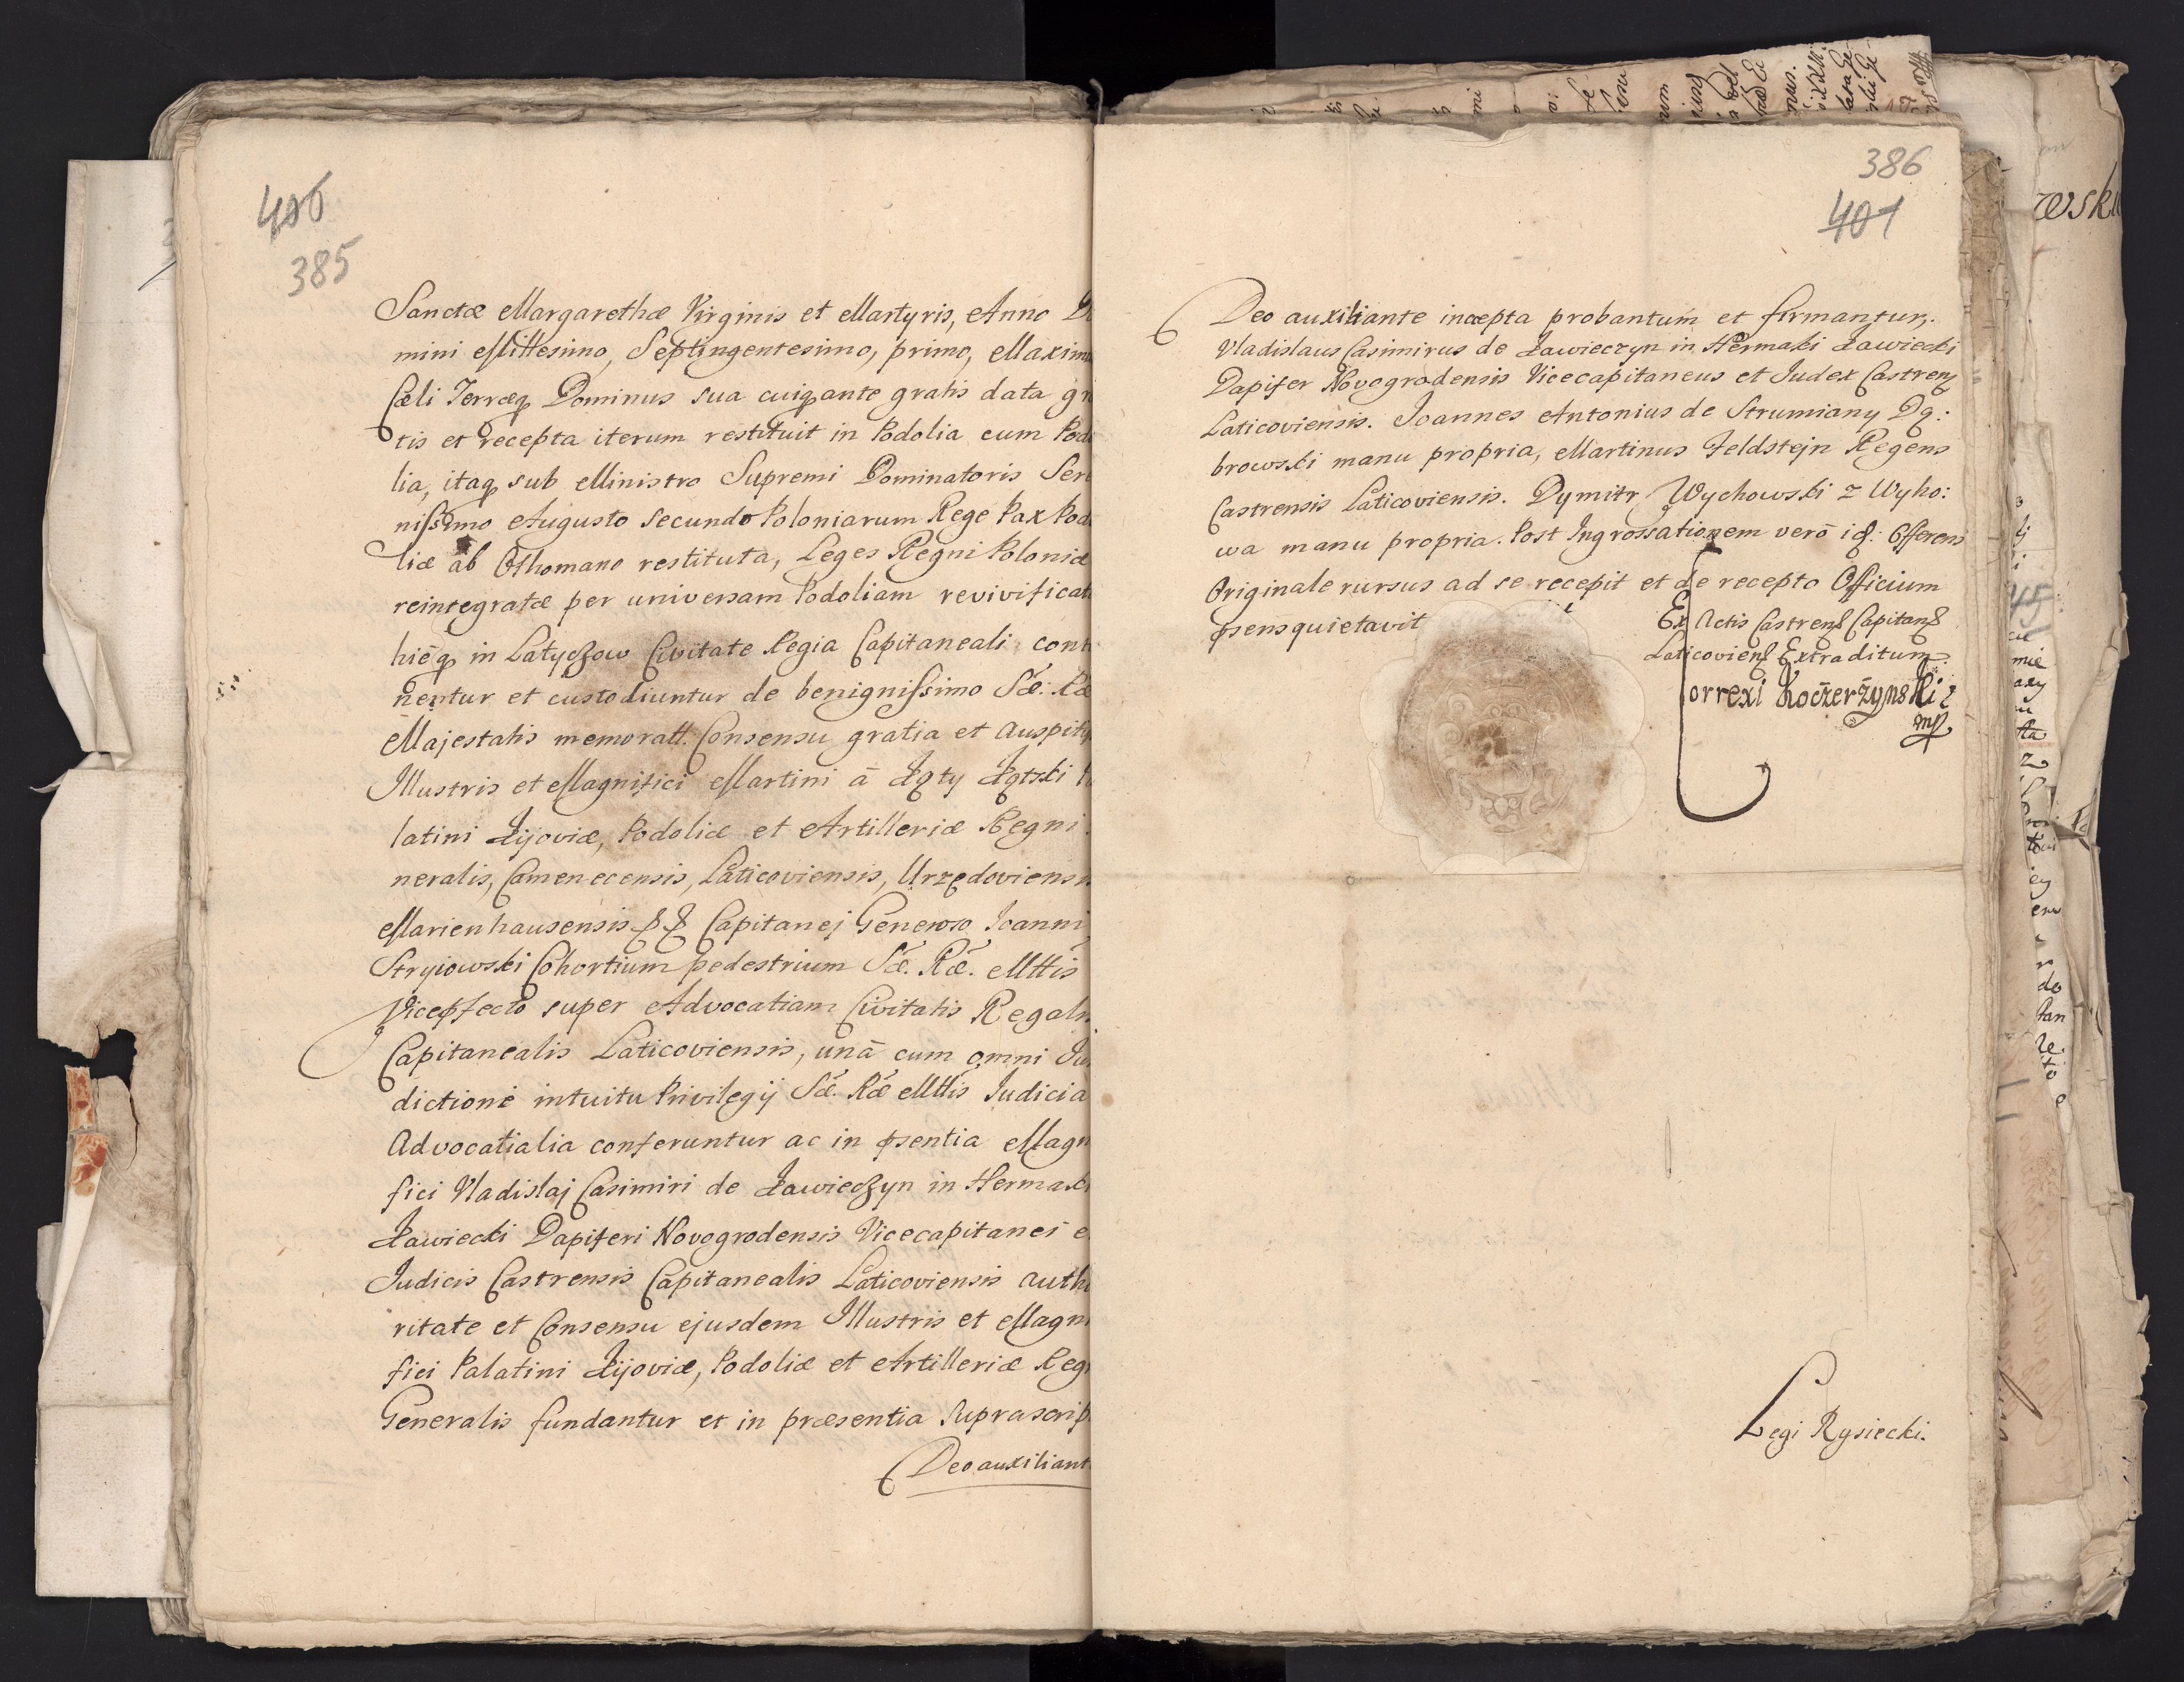 406
385
Sanctæ Margarethæ Virginis et Martyris, Anno Do
mini Millesimo, Septingentesimo, primo, Maxim
Cæli Terræq Dominus sua cuiq ante gratis data gr
tis et recepta iterum restituit in Podolia cum Podo
lia, itaq sub Ministro Supremi Dominatoris Sere
nissimo Augusto Secundo Poloniarum Rege Pax Podo
liæ ab Othomano restituta, Leges Regni Poloniæ
reintegratæ per universam Podoliam revivificat
hicq in Latyczow Civitate Regia Capitaneali cont
nentur et custodiuntur de benignissimo Sæ: Ræ
Majestatis memoratt. Consensu gratia et Auspitij
Illustris et Magnifici Martini à Kąty Kątski
latini Kijoviæ, Podoliæ et Artilleriæ Regni
neralis, Camenecensis, Laticoviensis, Urzędoviensis
Marienhausensis Capitanej Generoso Joanni
Stryiowski Cohortium pedestrium Sæ. Ræ. Mttis
Vicepfecto super Advocatiam Civitatis Regalis
Capitanealis Laticoviensis, unà cum omni Ju
dictione intuitu Privilegij Sæ. Ræ Mttis Judicia
Advocatialia conferuntur ac in psentia Magn
fici Vladislaj Casimiri de Ławieczyn in Hermaki
Ławiecki Dapiferi Novogrodensis Vicecapitanei e
Judicis Castrensis Capitanealis Laticoviensis Autho
ritate et Consensu ejusdem Illustris et Magni
fici Palatini Kijoviæ, Podoliæ et Artilleriæ Regn
Generalis fundantur et in præsentia Suprascrip
Deo auxiliant
386
401
Deo auxiliante incæpta probantum et firmantur,.
Vladislaus Casimirus de Ławieczyn in Hermaki Ławiecki
Dapifer Novogrodensis Vicecapitaneus et Judex Castren
Laticoviensis. Joannes Antonius de Strumiany Dą:
browski manu propria, Martinus Feldstejn Regens
Castrensis Laticoviensis. Dymitr Wychowski z Wyho:
wa manu propria. Post Ingrossationem verò id: Offerens
Originale rursus ad se recepit et de recepto Officium
psens quietavit
Ex Actis Castren Capitan
Laticovien Extraditum
Correxi Koczerzynski
mp
Legi Rysiecki.